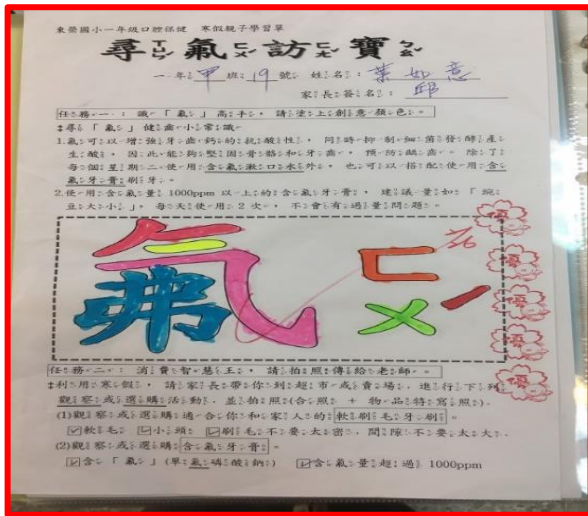 東榮國小一年級口腔保健 寒假親子學習單
尋氟訪寶
一年甲班19號 姓名：葉如意
家長簽名：邱
任務一：識「氟」高手，請塗上創意顏色。
尋「氟」健齒小常識
1.氟可以增強牙齒鈣的抗酸性，同時抑制細菌發酵產
生酸，因此能夠堅固骨骼和牙齒，預防齲齒。除了
每個星期二使用含氟漱口水外，也可以搭配使用含
氟牙膏刷牙。
2.使用含氟量1000ppm以上的含氟牙膏，建議量如「豌
豆大小」，每天使用2次，不會有過量問題。
氟ㄈㄨˊ
優
優
優
優
優
任務二：消費智慧王，請拍照傳給老師。
利用寒假，請家長帶你到超市或賣場，進行下列
觀察或選購活動，並拍照(合照 + 物品特寫照)。
(1)觀察或選購適合你和家人的軟刷毛牙刷。
☑軟毛 ☑小頭 ☑刷毛不要太密，間隙不要太大。
(2)觀察或選購含氟牙膏。
☑含「氟」(單氟磷酸鈉) ☑含氟量超過1000ppm